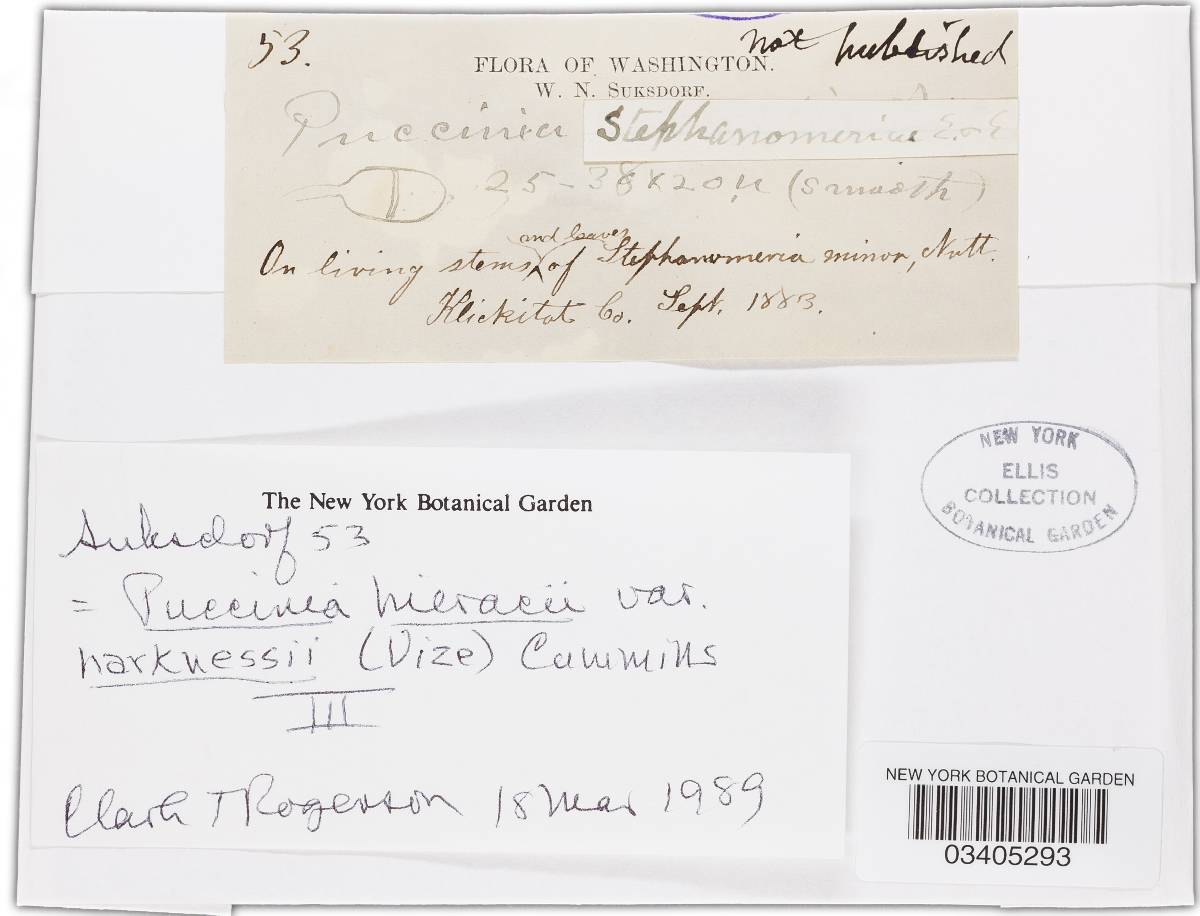 53.
not published
FLORA OF WASHINGTON.
W. N. SUKSDORF.
Puccinia Stephanomeriae E. & E
25-38 x 20 µ (smooth)
and leaves
On living stems of Stephanomeria minor, Nutt.
Klickitat Co. Sept. 1883.
NEW YORK
ELLIS
COLLECTION
BOTANICAL GARDEN
The New York Botanical Garden
Suksdorf 53
= Puccinia hieracii var.
harknessii (Vize) Cummins
III
Clark T Rogerson 18 Mar 1989
NEW YORK BOTANICAL GARDEN
03405293